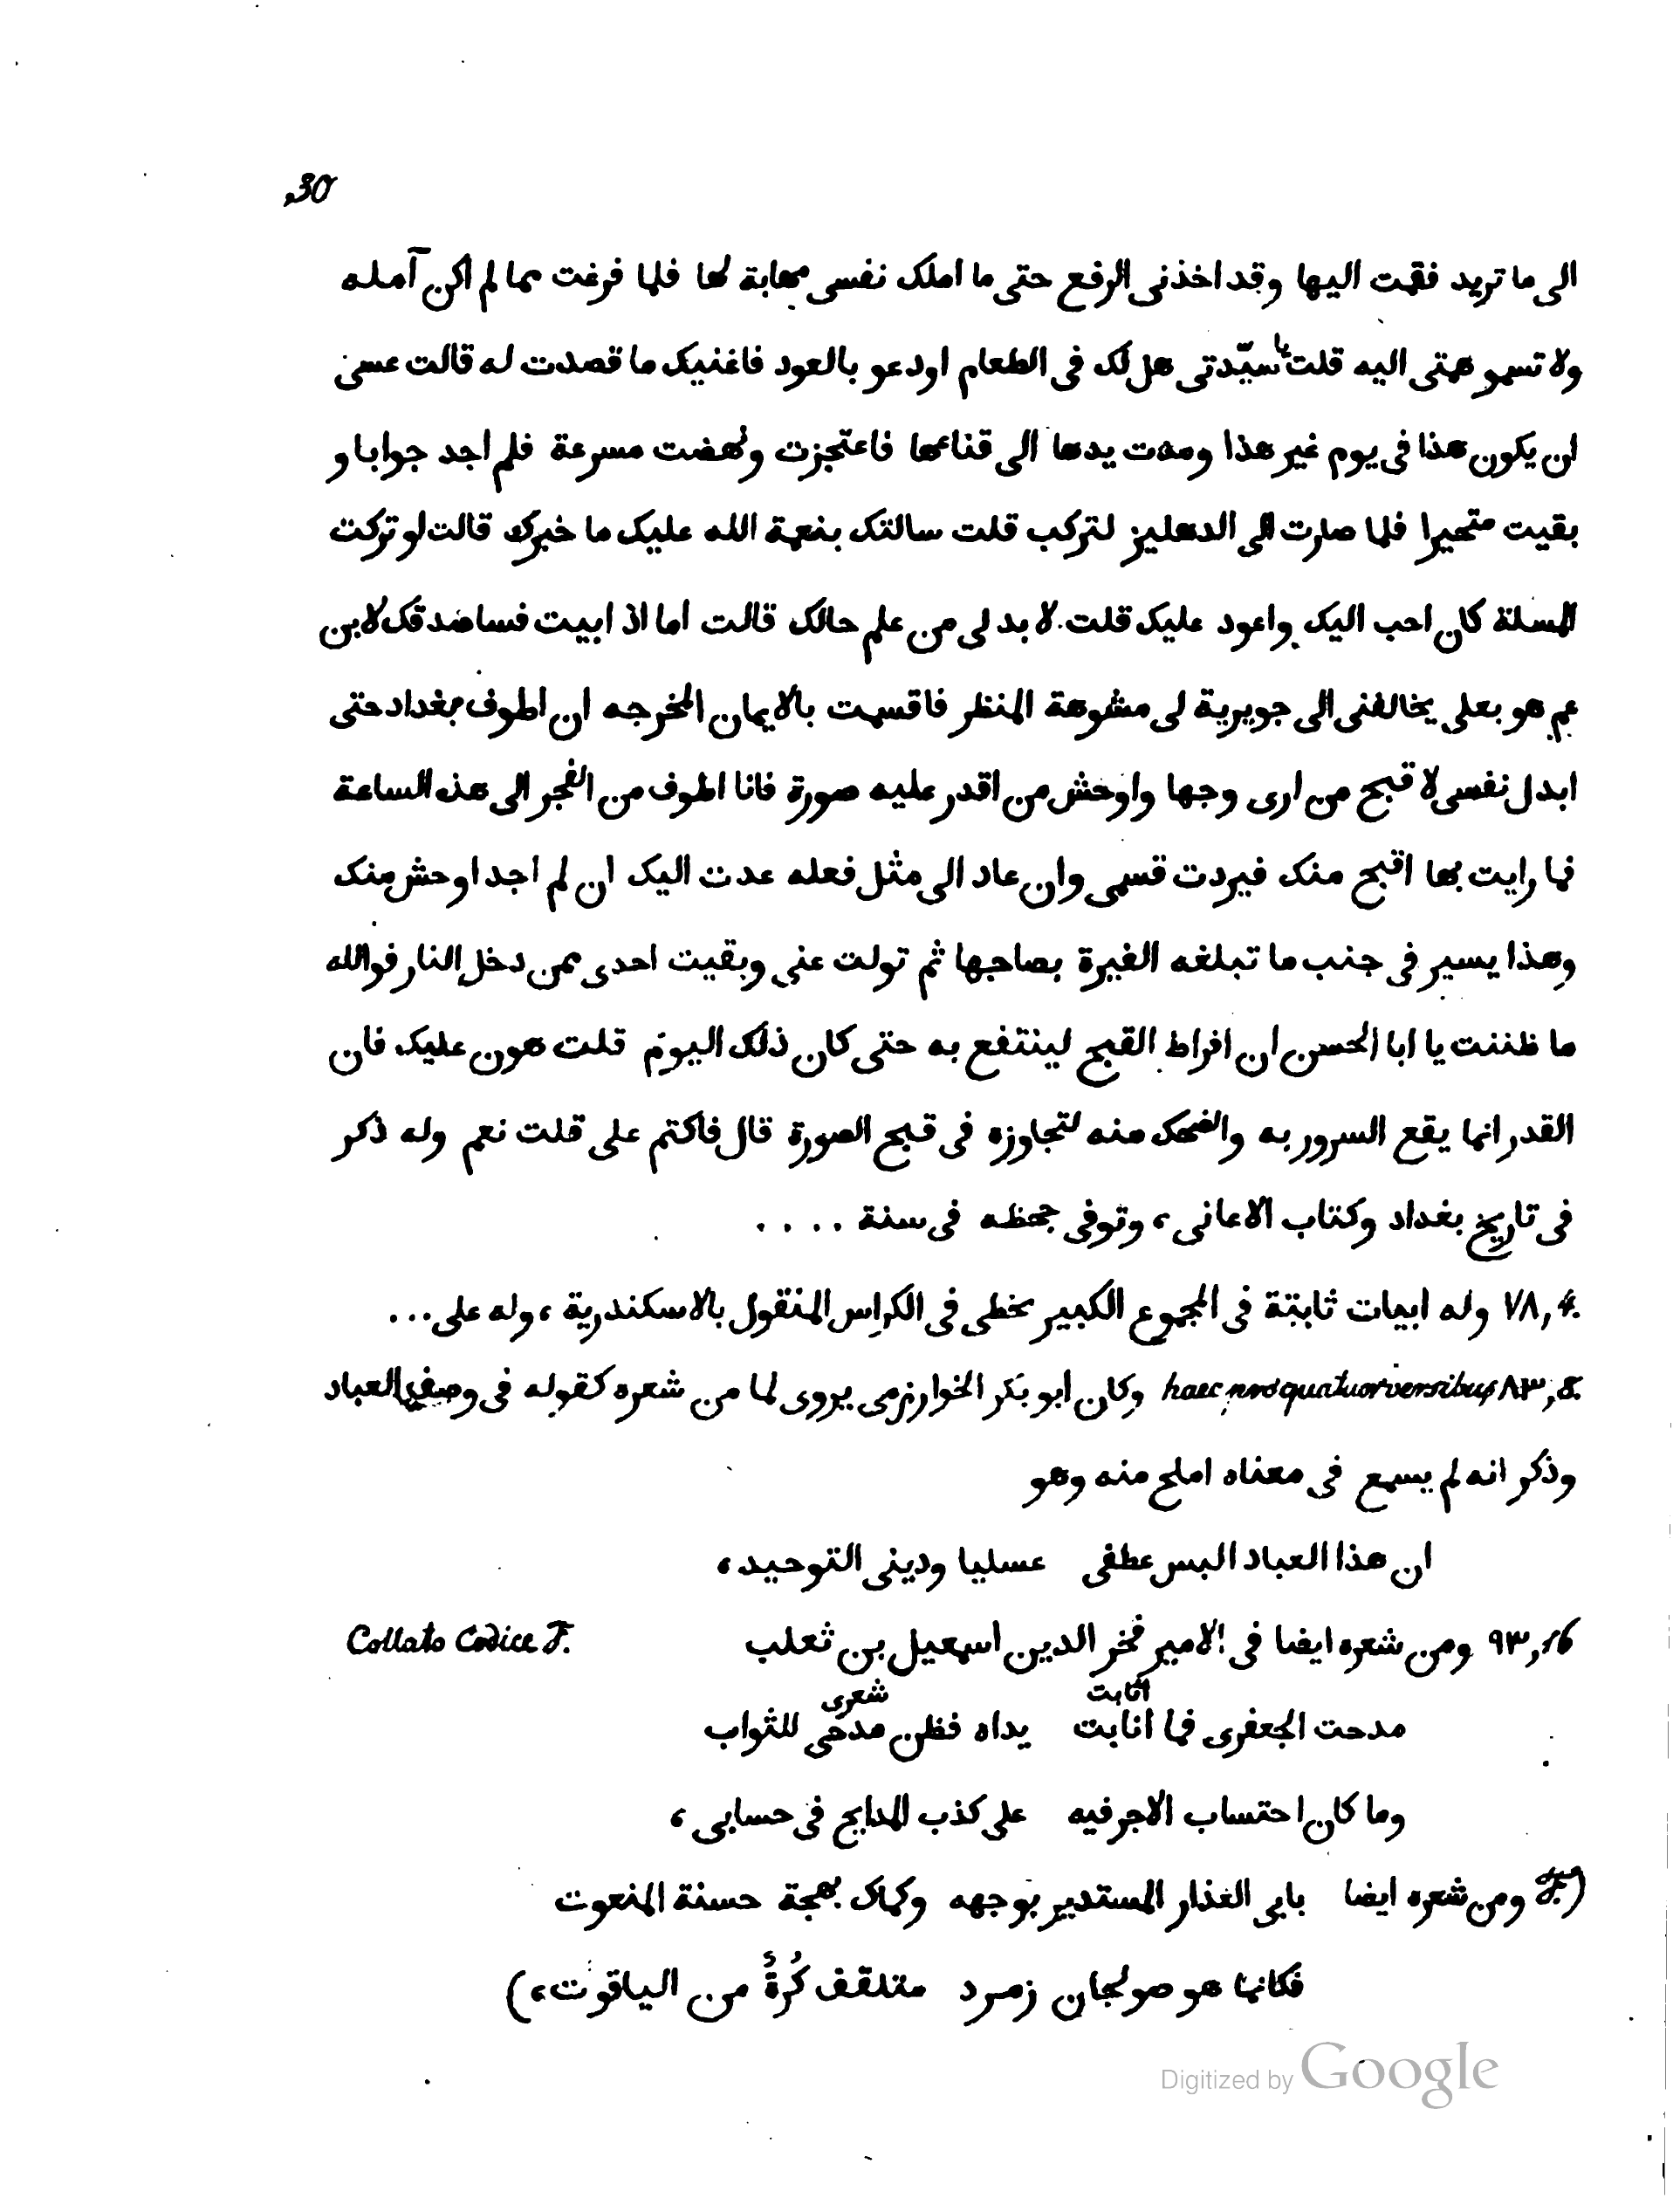 30.
الى ما تريد فقمت اليها وقد اخذنى الرفع حتى ما املك نفسى مهابة لها فلما فرغت مما لم اكن آمله
ولا تسمو همتى اليه قلت يا سيّدتى هل لك فى الطعام او دعو بالعود فاغنيك ما قصدت له قالت عسى
ان يكون هذا فى يوم غير هذا ومدت يدها الى قناعها فاعتجزت ونهضت مسرعة فلم اجد جوابا و
بقيت متحيرا فلما صارت الى الدهليز لتركب قلت سالتك بنعمة الله عليك ما خبرك قالت لو تركت
المسلة كان احب اليك واعود عليك قلت لا بد لى من علم حالك قالت اما اذ ابيت فساصدقك لابن
عم هو بعلى يخالفنى الى جويرية لى مشوهة المنظر فاقسمت بالايمان المخرجه ان اطوف بغداد حتى
ابدل نفسى لا قبح من ارى وجها واوحش من اقدر عليه صورة فانا اطوف من الفجر الى هذه الساعة
فما رايت بها اقبح منك فبردت قسمى وان عاد الى مثل فعله عدت اليك ان لم اجد اوحش منك
وهذا يسير فى جنب ما تبلغه الغيرة بصاحبها ثم تولت عنى وبقيت احدى ممن دخل النار فوالله
ما ظننت يا ابا الحسن ان افراط القبح لينتفع به حتى كان ذلك اليوم قلت هون عليك فان
القدر انما يقع السرور به والضحك منه لتجاوزه فى قبح الصورة قال فاكتم على قلت نعم وله ذكر
فى تاريخ بغداد وكتاب الاعانى، وتوفى جحظه فى سنة ....
٧٨,4. وله ابيات ثابتة فى المجموع الكبير بخطى فى الكراس المنقول بالاسكندرية، وله على...
٨٣,8. haec pro quatuor versibus وكان ابو بكر الخوارزمى يروى لما من شعره كقوله فى وصف العباد
وذكر انه لم يسمع فى معناه املح منه وهو
ان هذا العباد البس عطفى عسليا ودينى التوحيد،
٩٣,16 ومن شعره ايضا فى الامير فخر الدين اسمعيل بن ثعلب Collato Codice F.
اثابت شعرى
مدحت الجعفرى فما انابت يداه فظن مدحى للثواب
وما كان احتساب الاجر فيه على كذب المدايح فى حسابى،
(F. ومن شعره ايضا بابى العذار المستدير بوجهه وكماك بهجة حسنة المنعوت
فكانما هو صولجان زمرد متلقف كُرةً من الياقوت،)
Digitized by Google